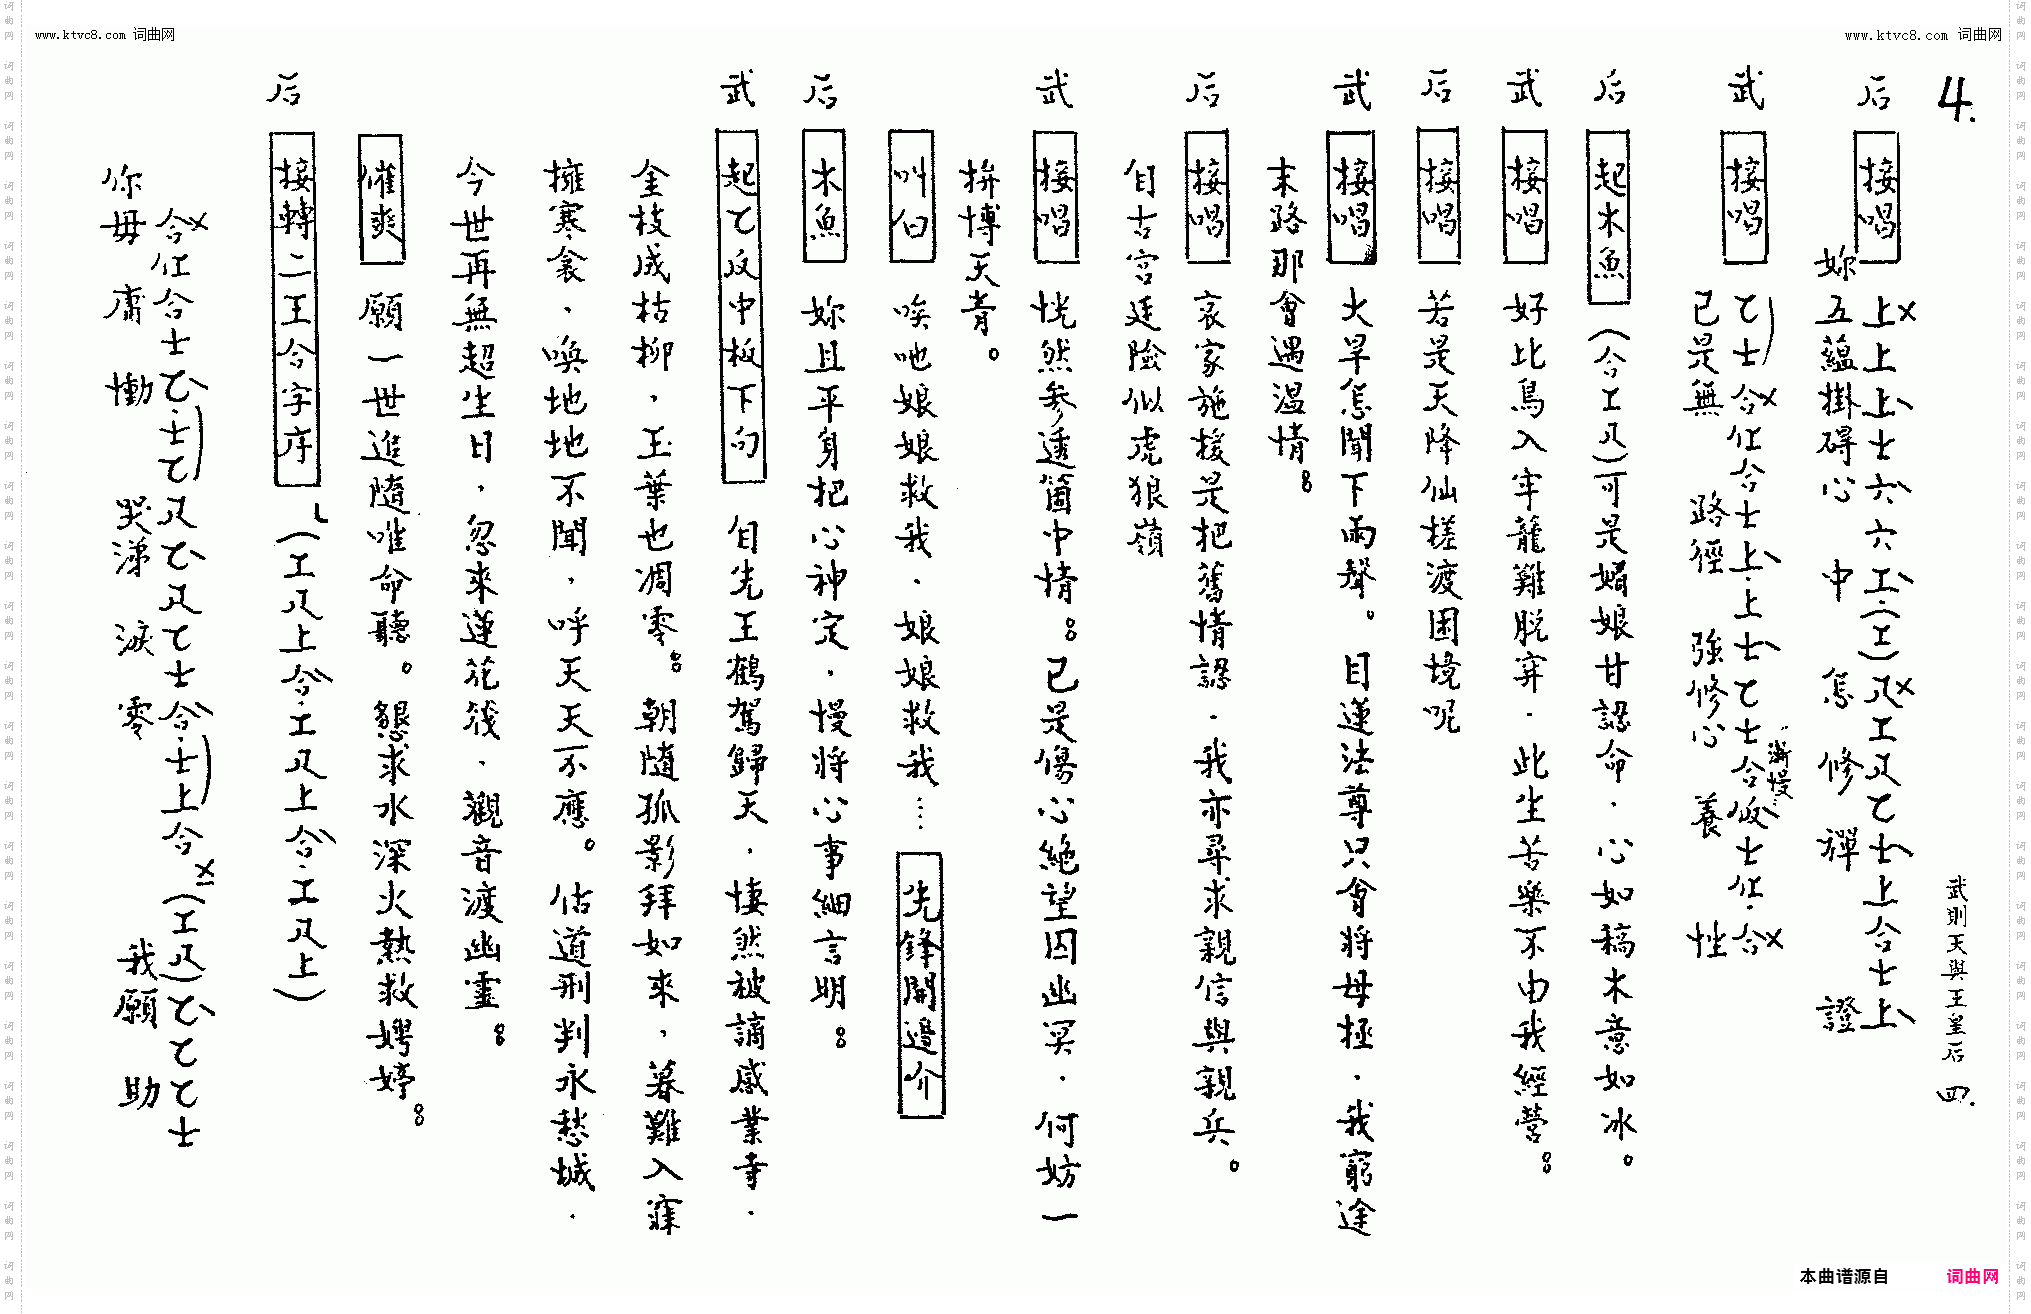 www.ktvc8.com 词曲网
www.ktvc8.com 词曲网
4.
武則天與王皇后 四.
后 接唱 上上上士六六工.(工)尺工尺乙士上合士上
妳五蘊掛碍心 中 怎 修 禪 證
武 接唱 乙士合仜合士上.上士乙士合伬士仜.合
漸慢…
已是無 路徑 強修心 養 性
后 起木魚 (合工尺)可是媚娘甘認命.心如稿木意如冰。
武 接唱 好比鳥入牢籠難脫穽.此生苦樂不由我經營。
后 接唱 若是天降仙槎渡困境呢
武 接唱 大旱怎聞下雨聲。目蓮法尊只會將母拯.我窮途
末路那會遇温情。
后 接唱 哀家施援是把舊情認.我亦尋求親信與親兵。
自古宮廷險似虎狼嶺
武 接唱 恍然參透箇中情。已是傷心絶望囚幽冥.何妨一
拚博天青。
叫白 唉吔娘娘救我.娘娘救我…… 先鋒開邊介
后 木魚 妳且平身把心神定.慢將心事細言明。
武 起乙反中板下句 自先王鶴駕歸天.悽然被謫感業寺.
金枝成枯柳，玉葉也凋零。朝隨孤影拜如來，暮難入寐
擁寒衾、喚地地不聞，呼天天不應。估道刑判永愁城.
今世再無超生日，忽來蓮花筏.觀音渡幽靈。
催爽 願一世追隨唯命聽。懇求水深火熱救娉婷。
后 接轉二王合字序 (工尺上合.工尺上合.工尺上)
合仜合士乙.士乙尺乙尺乙士合.士上合 (工尺)乙乙乙士
你毋庸慟 哭涕 淚 零 我願 助
本曲谱源自 词曲网